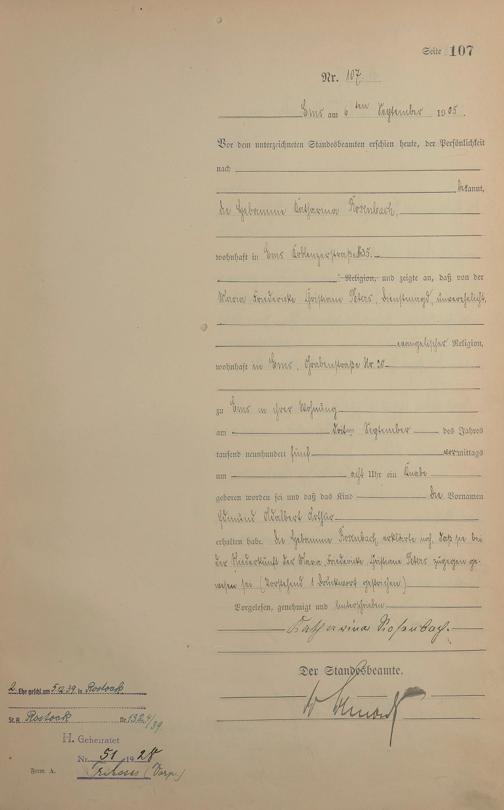 Seite 107
Nr. 107
Ems am 6ten September 1905.
Vor dem unterzeichneten Standesbeamten erschien heute, der Persönlichkeit
nach
bekannt,
die Hebamme Catharina Rosenbach,
wohnhaft in Ems Coblenzerstraße №35.
Religion, und zeigte an, daß von der
Maria Friedericke Christiane Peters, Dienstmagd, unverehelicht,
evangelischer Religion,
wohnhaft in Ems, Grabenstraße Nr. 20
zu Ems in ihrer Wohnung
am September des Jahres
tausend neunhundert fünf vormittags
um acht Uhr ein Knabe
geboren worden sei und daß das Kind die Vornamen
Edmund Adalbert Arthur
erhalten habe. Die Hebamme Rosenbach erklärte noch, daß sie bei
der Niederkunft der Maria Friedericke Christiane Peters zugegen ge-
wesen sei (Vorstehend 1 Druckwort gestrichen)
Vorgelesen, genehmigt und unterschrieben
Catharina Rosenbach.
Der Standesbeamte.
2. Ehe geschl. am 5.12.39 in Rostock
St. A. Rostock Nr.
H. Geheiratet
Nr. 51 1928
Form. A.